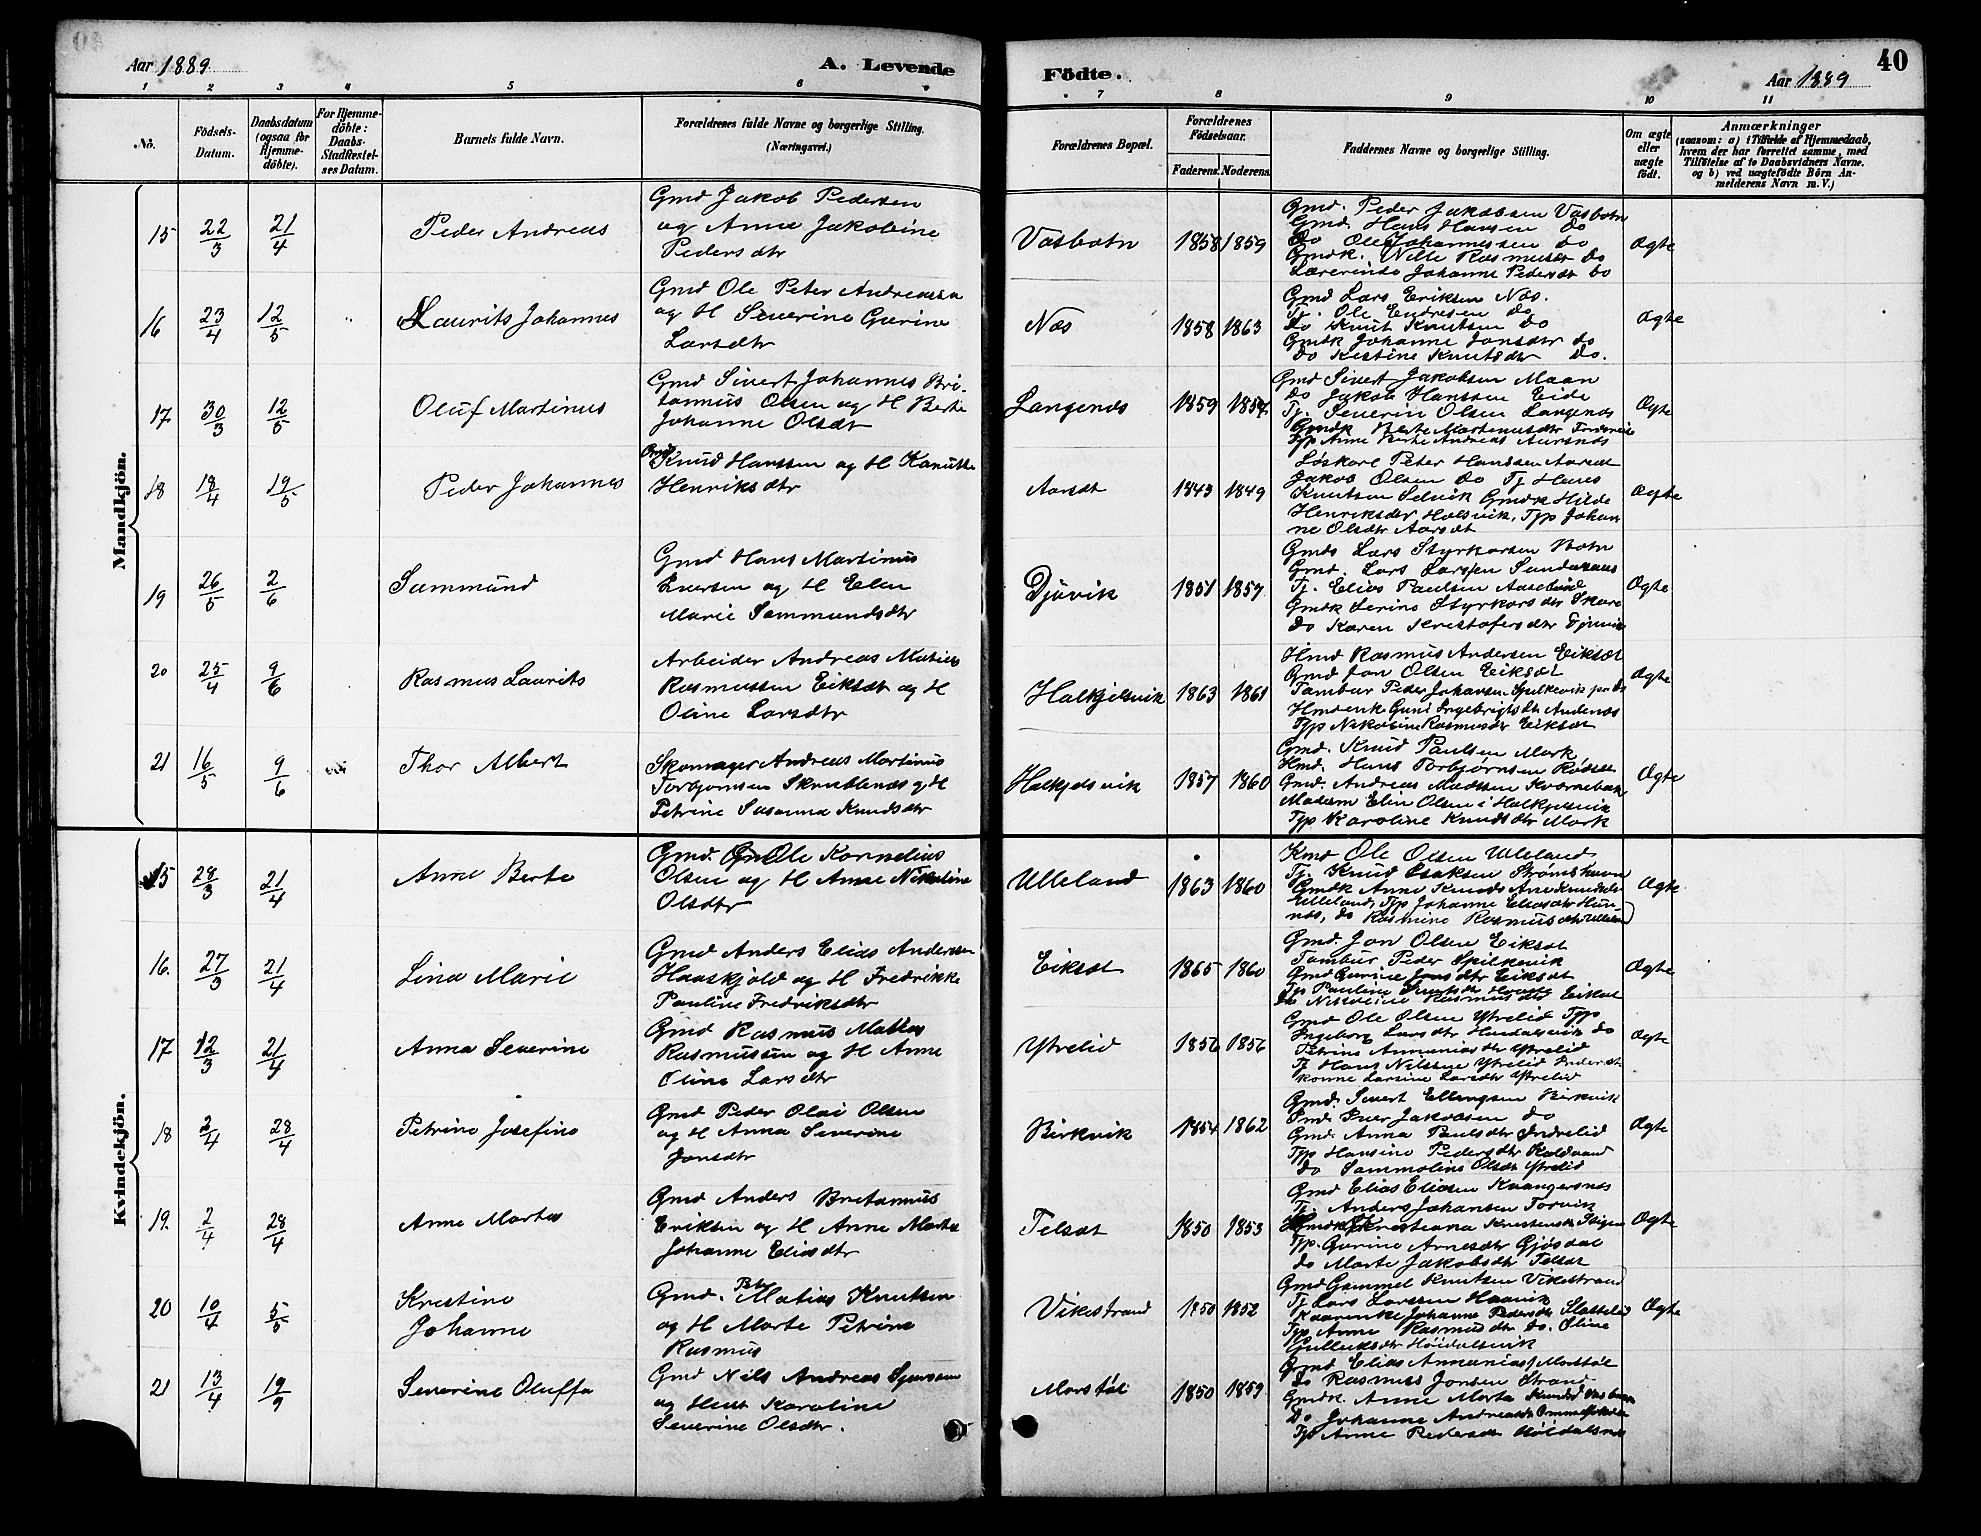 Aar 1889
A. Levende
Födte.
Aar 1889
40
1 2 3 4 5 6 7 8 9 10 11
No.
Födsels-
Datum.
Daabsdatum
(ogsaa for
Hjemme-
döbte).
For Hjemme-
döbte:
Daabs-
Stadfæstel-
ses Datum.
Barnets fulde Navn.
Forældrenes fulde Navne og borgerlige Stilling.
(Næringsvei.)
Forældrenes Bopæl.
Forældrenes
Födselsaar.
Faderens. Moderens.
Faddernes Navne og borgerlige Stilling.
Om ægte
eller
uægte
födt.
Anmærkninger
(saasom: a) i Tilfælde af Hjemmedaab,
hvem der har forrettet samme, med
Tilföielse af to Daabsvidners Navne,
og b) ved uægtefödte Börn An-
melderens Navn m. V.)
Mandkjön.
15 22/3 21/4 Peder Andreas
Gmd Jakob Pedersen
og Anna Jakobine
Pedersdtr
Vasbotn 1858 1859
Gmd. Peder Jakobsen Vasbotn
Gmd. Hans Hansen do
Do Ole Johannessen do
Gmdk. Nille Rasmusdt do
Lærerinde Johanne Pedersdt do
Ægte
16 23/4 12/5 Laurits Johannes
Gmd Ole Peter Andreassen
og H Severine Gurine
Larsdtr
Næs 1858 1863
Gmd Lars Eriksen Næs.
Tj. Ole Endresen do
Do Knut Knutsen do
Gmdk Johanne Jonsdtr do
do Kristine Knutsdtr do.
Ægte
17 30/3 12/5 Oluf Martinus
Gmd Sivert Johannes Bri-
tanius Olsen og H Berte
Johanne Olsdt
Langenæs 1859
Gmd Sivert Jakobsen Maan
Do Jakob Hanssen Eide
Tj. Severin Olsen Langenæs
Gmdk Berte Martenusdtr
Typ Anne Berte Andreas Aursnæs
Ægte
18 18/4 19/5 Peder Johannes
Gmd Knud Hanssen og H Kanutte
Henriksdtr
Aarsæt 1843 1849
Løskarl Peter Hansen Aarsæt
Jakob Olsen do Tj Hans
Knutsen Selvik Gmdk Hilde
Henriksdtr Holsvik, Typ Johan
ne Olsdtr Aarsæt
Ægte
19 26/5 2/6 Sammund
Gmd Hans Martinus
Iversen og H Elen
Marie Sammundsdtr
Djuvik 1851 1857
Gmds Lars Styrkorsen Botn
Gmd. Lars Larssen Sundsnæs
Tj. Elias Paulsen Aasebø
Gmdk Serine Styrkorsdtr Skare
do Karen Kristofersdtr Djuvik
Ægte
20 25/4 9/6 Rasmus Laurits
Arbeider Andreas Matias
Rasmussen Eiksæt og H
Oline Larsdtr
Halkjelsvik 1863 1861
Hmd Rasmus Andersen Eiksæt
Gmd Jon Olsen Eiksæt
Tambur Peder Johansen Spilkevik
Hmdenk Guni Ingebrigtsdtr Audenæs
Typ Nikoline Rasmusdtr Eiksæt
Ægte
21 16/5 9/6 Thor Albert
Skomager Andreas Martinus
Torbjørnsen Skrublenæs og H
Petrine Susanna Knudsdtr
Halkjelsvik 1857 1860
Gmd. Knud Paulsen Mork
Hmd. Hans Torbjørnsen Rødset
Gmd. Andreas Madssen
Madam Elen Olsen i Halkjelsvik
Typ Karoline Knudsdtr Mork
Ægte
Kvindekjön.
15 28/3 21/4 Anne Berte
Gmd. Ole Kornelius
Olsen og H Anne Nikoline
Olsdtr
Ulleland 1863 1860
Kmd Ole Olsen Ulleland
Tj. Knud Isaksen Strømshavn
Gmdk Anne Knuds
Ulleland, Typ Johanne Eliasdtr Hun-
næs, do Rasmine Rasmusdtr Ulleland
Ægte
16. 27/3 21/4 Lina Marie
Gmd Anders Elias Anderssen
Haaskjold og H Fredrikke
Pauline Fredriksdtr
Eiksæt 1865 1860
Gmd. Jon Olsen Eiksæt
Tambur Peder Spilkevik
Gmd Gurine Jonsdtr Eiksæt
Typ Pauline Knutsdtr
do Nikoline Rasmusdtr Eiksæt
Ægte
17 12/3 21/4 Anna Severine
Gmd Rasmus Mattias
Rasmussen og H Anne
Oline Larsdtr
Ytrelid 1856 1856
Gmd Ole Olsen Ytrelid Typ
Ingeborg Larsdtr do
Petrine Annaniasdtr Ytrelid
Tj Hans Nilssen Ytrelid Inderst
konne Larsine Larsdtr Ytrelid
Ægte
18 2/4 28/4 Petrine Josefine
Gmd Peder Olai Olsen
og H Anna Severine
Jonsdtr
Birkvik 1854 1862
Gmd. Sivert Ellingsen Birkvik
Gmd. Iver Jakobsen do
Gmd. Anna Paulsdtr Indrelid
Typ Hansine Pedersdtr Kaldvand
do Sammoline Olsdtr Ytrelid
Ægte
19. 2/4 28/4 Anne Marta
Gmd Anders Britanius
Eriksen og H Anne Marta
Johanne Eliasdtr
Telsæt 1850 1853
Gmd Elias Eliasen Kvangersnæs
Tj. Anders Johansen Torvik
Kristiana Knutsdtr
Typ. Gurine Arnesdtr Gjøsdal
do Marte Jakobsdtr Telsæt
Ægte
20 10/4 5/5 Kristine
Johanne
Gmd. Matias Knutsen
og H Marte Petrine
Rasmus
Vikestrand 1850 1852
Gmd Gammel Knutsen Vikestrand
Tj Lars Larssen Haavik
Kaarenke Johanne Pedersdtr Slettelid
Typ Anne Rasmusdtr do. Oline
Gulleiksdtr Høidalsvik
Ægte
21 13/4 19/9 Severine Oluffa
Gmd Nils Andreas
og Hust Karoline
Severine Olsdtr.
Morstøl 1850 1859
Gmd Elias Annanias Morstøl
Do Rasmus Jonsen Strand
Gmdk. Anne Marta Knudsd Vasbotn
Do Johanne Andreasdtr
Typ Anne Pedersdt Høidalsnæs